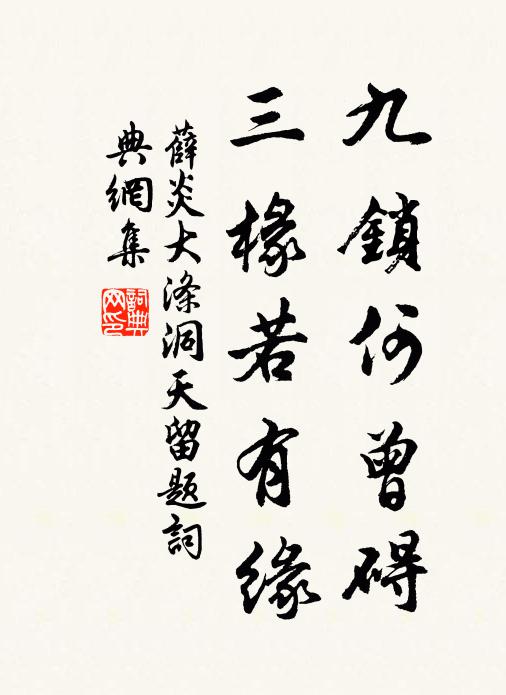 九鎖何曾碍
三椽若有緣
薛炎大涤洞天留題詞
典網集
詞典网印